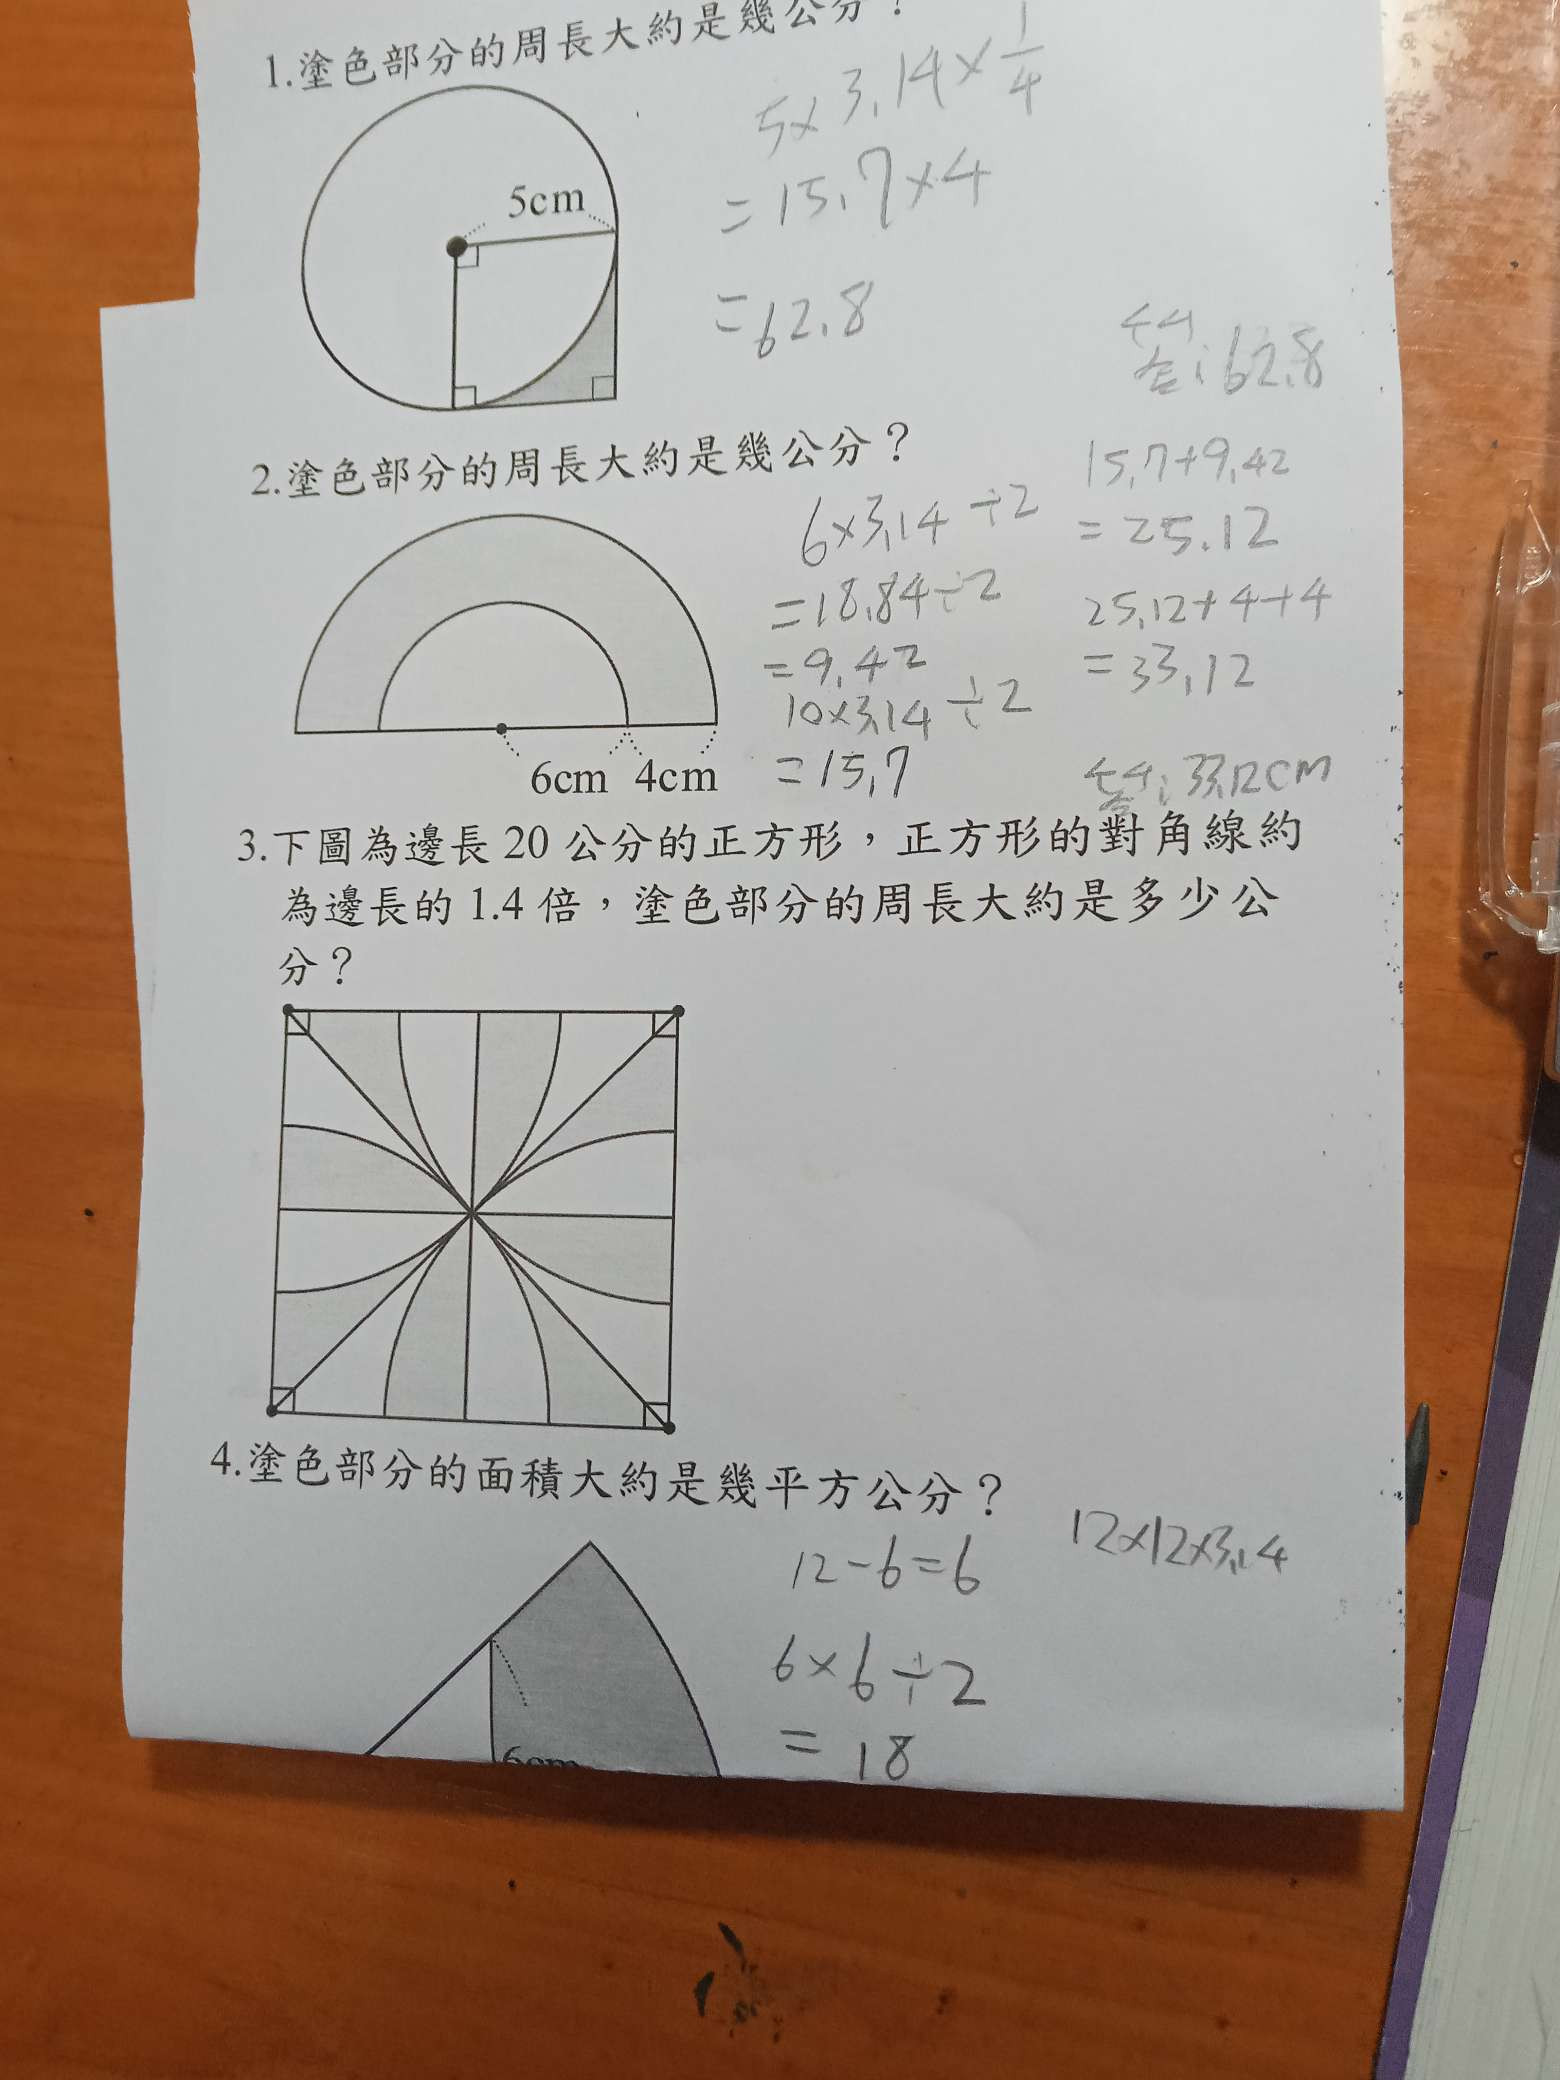 1.塗色部分的周長大約是幾公分？
5cm
5×3.14×1/4
=15.7×4
=62.8
答:62.8
2.塗色部分的周長大約是幾公分？
6cm 4cm
6×3.14÷2
=18.84÷2
=9.42
10×3.14÷2
=15.7
15.7+9.42
=25.12
25.12+4+4
=33.12
答:33.12cm
3.下圖為邊長20公分的正方形，正方形的對角線約
為邊長的1.4倍，塗色部分的周長大約是多少公
分？
4.塗色部分的面積大約是幾平方公分？
6cm
12-6=6
6×6÷2
=18
12×12×3.14